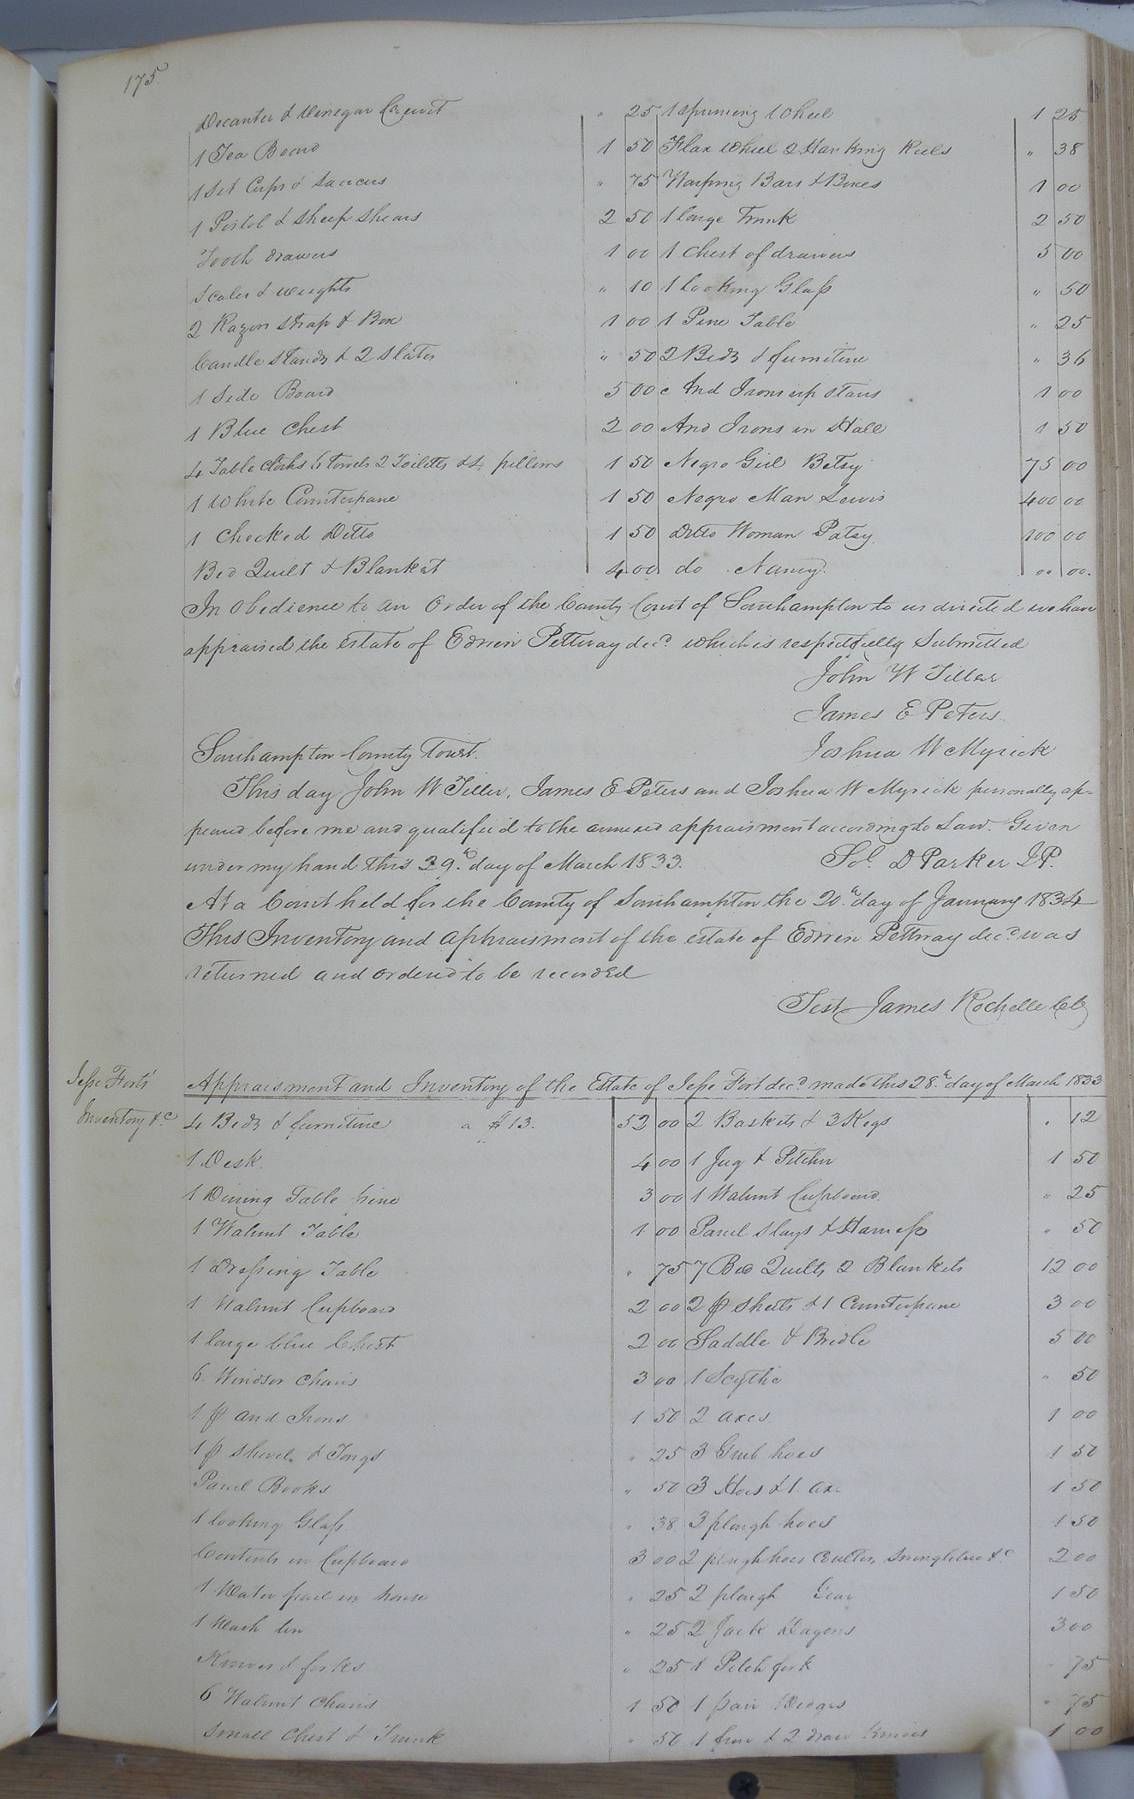 175.
Decanter & Vinegar Cruit " 25 1 Spinning Wheel 1 25
1 Tea Board 1 50 Flax Wheel & Hanking Reels " 38
1 Set Cups & Saucers " 75 Warping Bars & Boxes 1 00
1 Pistol & Sheep Shears 2 50 1 large Trunk 2 50
Tooth drawers 1 00 1 Chest of drawers 5 00
Scales & weights " 10 1 Looking Glass " 50
2 Razors Strap & Box 1 00 1 Pine Table " 25
Candle Stands & 2 Slates " 50 2 Beds & furniture " 36
1 Side Board 5 00 And Irons up stairs 1 00
1 Blue Chest 2 00 And Irons in Hall 1 50
4 Table Cloths 6 Towels 2 Toiletts & 4 pillows 1 50 Negro Girl Betsy 75 00
1 White Counterpane 1 50 Negro Man Lewis 400 00
1 Checked Ditto 1 50 Ditto Woman Patsy 100 00
Bed Quilt & Blanket 4 00 do Nancy 00 00.
In Obedience to an Order of the County Court of Southampton to us directed we have
appraised the Estate of Edwin Pettway decd. which is respectfully Submitted
John W Tiller
James E Peters
Joshua W Myrick
Southampton County Towit.
This day John W Tiller, James E Peters and Joshua W Myrick personally ap-
peared before me and qualified to the annexed appraisment according to Law. Given
under my hand this 29th day of March 1833. Sol. D Parker J.P.
At a Court held for the County of Southampton the 20th day of January 1834
This Inventory and appraisment of the estate of Edwin Pettway decd. was
returned and ordered to be recorded
Test James Rochelle Clk
Jesse Forts' Appraisment and Inventory of the Estate of Jesse Fort decd. made this 28th day of March 1833
Inventory &c 4 Beds & furniture a $13. 52 00 2 Baskets & 3 Kegs " 12
1 Desk. 4 00 1 Jug & Pitcher 1 50
1 Dining Table pine 3 00 1 Walnut Cupboard " 25
1 Walnut Table 1 00 Parcel Slays & Harness " 50
1 Dressing Table " 75 7 Bed Quilts 2 Blankets 12 00
1 Walnut Cupboard 2 00 2 pr Sheets & 1 Counterpane 3 00
1 large blue Chest 2 00 Saddle & Bridle 5 00
6 Windsor Chairs 3 00 1 Scythe " 50
1 pr and Irons 1 50 2 axes 1 00
1 pr Shovel & Tongs " 25 3 Grub hoes 1 50
Parcel Books " 50 3 Hoes & 1 ax 1 50
1 looking Glass " 38 3 plough hoes 1 50
Contents in Cupboard 3 00 2 plough hoes Coulter, Swingletree &c 2 00
1 Water pail in house " 25 2 plough Gear 1 50
1 Wash tin " 25 2 Jack 3 00
Knives & forks " 25 & Pitch fork " 75
6 Walnut Chairs 1 50 1 pair " 75
Small Chest & Trunk " 50 1 & 2 draw Knives 1 00